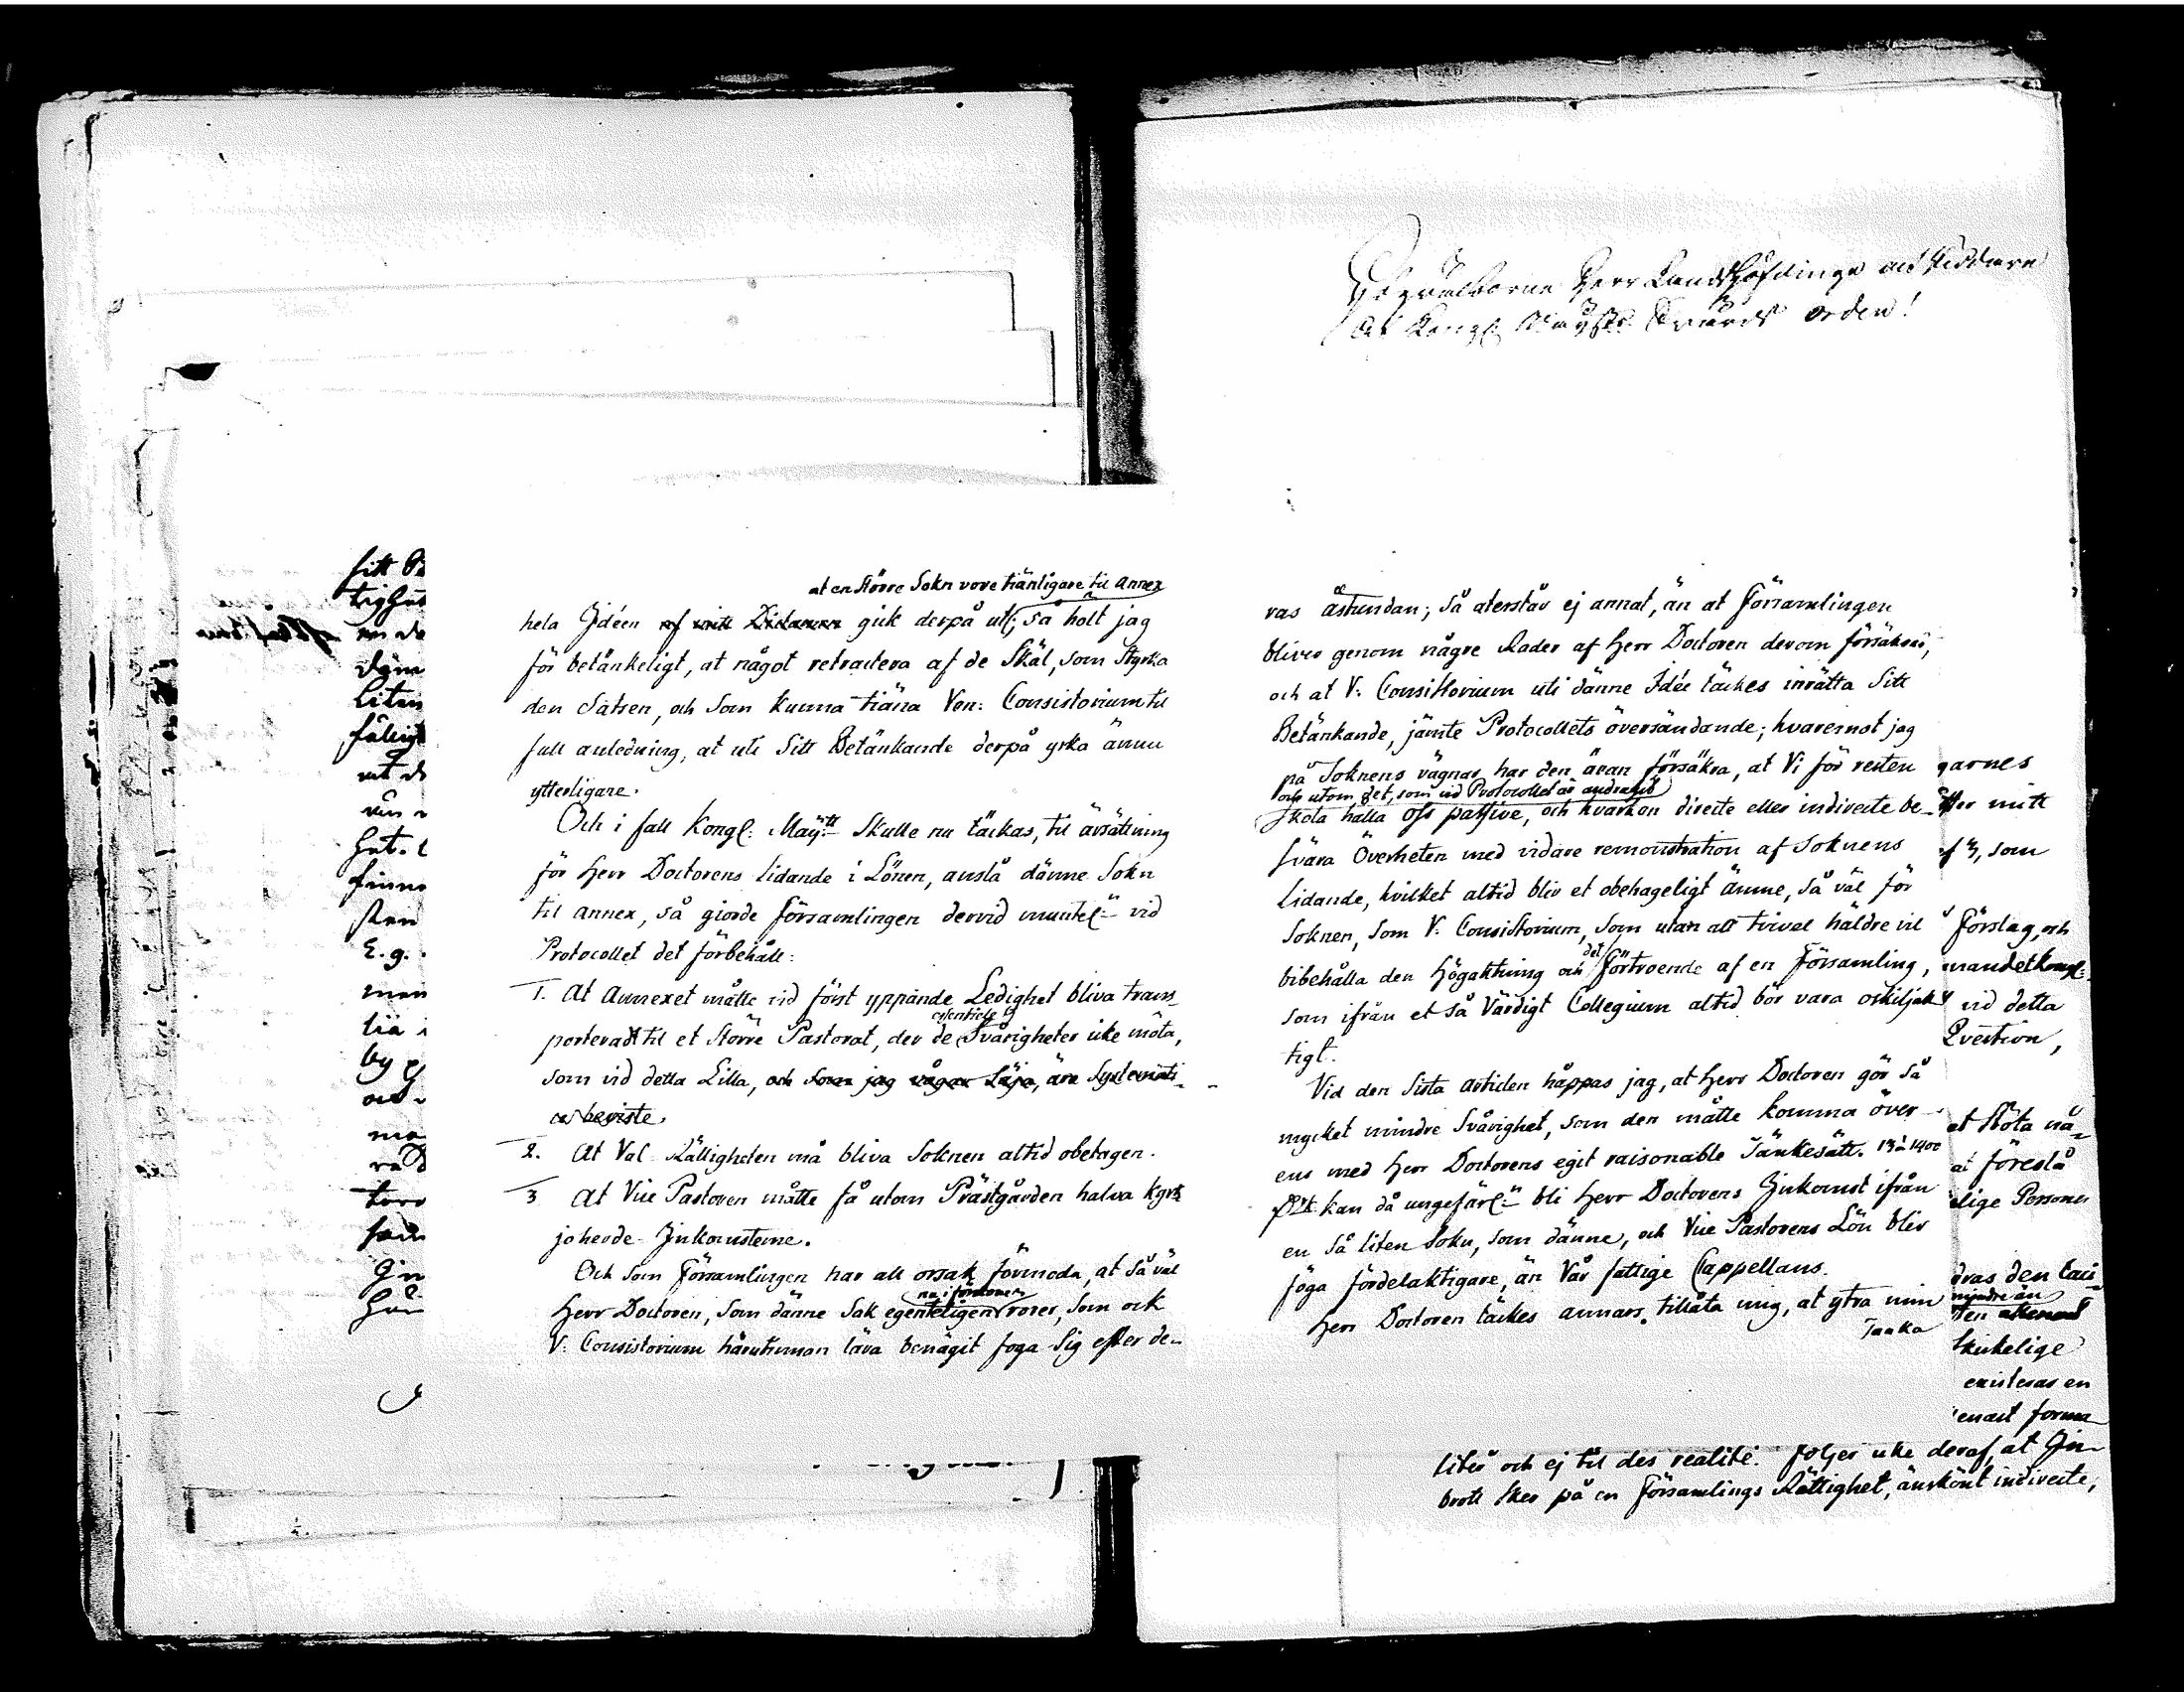 Högvälborne Herr Landshöfdinge och Riddare
Af Kongl. Mayst:s Svärds orden!
sitt
tighet
en de
liten
finne
sten
E.g.
men
at en större Sokn vore tiänligare til Annex
hela Idéen af gik derpå ut; så holt jag
för betänkeligt, at något retractera af de Skäl, som Styrka
den Satsen, och Som kunna tiäna Ven: Consistorium til
full anledning, at uti Sitt Betänkande derpå yrka ännu
ytterligare.
Och i fall Kongl: Maÿ:tt Skulle nu täckas, til ärsättning
för Herr Doctorens lidande i Lönen, anslå dänne Sokn
til annex, så giorde församlingen dervid muntel:n vid
Protocollet det förbehåll:
1. At Annexet måtte vid först yppande Ledighet bliva trans-
porterat til et Större Pastorat, der de essentiele Svårigheter icke möta,
som vid detta Lilla, och Som jag vågar Säja, äro Systemati-
ce beviste.
2. At Val-Rättigheten må bliva Soknen altid obetagen.
3 At Vice Pastoren måtte få utom Prästgården halva Kyrk
joherde-Inkomsterne.
Och Som Församlingen har all orsak förmoda, at Så väl
Herr Doctoren, Som dänne Sak egenteligen nu i förstonen rörer, Som ock
V: Consistorium härutinnan lära benägit foga Sig efter de-
ras åstundan; Så återstår ej annat, än at Församlingen
bliver genom någre Rader af Herr Doctoren derom försäkrad,
och at V: Consistorium uti dänne Idée täckes inrätta Sitt
Betänkande, jämte Protocollets översändande; hvaremot jag
på Soknens vägnar har den äran försäkra, at Vi för resten
och utom det, som vid Protocollet är andragit
Skola hålla oss passive, och hvarken directe eller indirecte be-
svära Överheten med vidare remonstration af Soknens
lidande, hvilket altid blir et obehageligt ämne, Så väl för
Soknen, Som V: Consistorium, Som utan alt tvivel häldre vil
bibehålla den Högaktning och det Förtroende af en Församling,
Som ifrån et Så Värdigt Collegium altid bör vara oskiljak
tigt.
Vid den Sista articlen håppas jag, at Herr Doctoren gör Så
mycket mindre Svårighet, som den måtte komma över-
ens med Herr Doctorens egit raisonable Tänkesätt. 13 à 1400
kan då ungefärl:n bli Herr Doctorens Inkomst ifrån
en Så liten Sokn, Som dänne, och Vice Pastorens Lön blir
föga fördelaktigare, än Vår fattige Cappellans.
Herr Doctoren täckes annars tillåta mig, at ytra min
Tanka
garnes
mitt
som
Förslag, och
vid detta
Qvestion,
et Stöta nå-
at föreslå
elige Personer
dras den taci-
mindre än
Skickelige
existeras en
enast forma
litér och ej til des realité. Följer icke deraf, at In-
brott Sker på en Församlings Rättighet, änskönt indirecte,